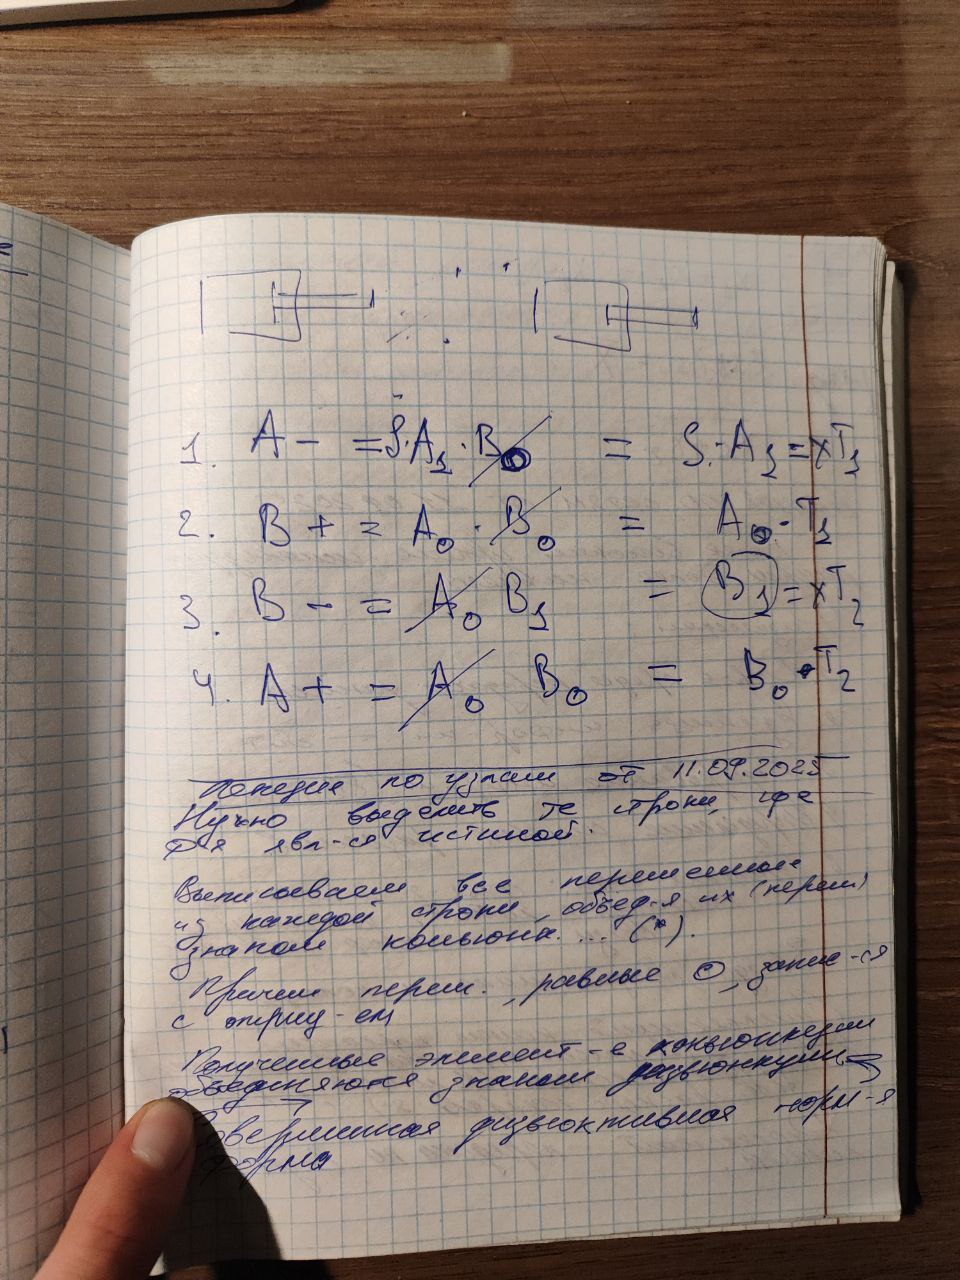 1. A - = S·A₁·B₀ = S·A₁ = xT₁
2. B + = A₀·B₀ = A₀·T₁
3. B - = A₀ B₁ = B₁ = xT₂
4. A + = A₀ B₀ = B₀·T₂
Лекция по узлам от 11.09.2025
Нужно выделить те строки, где
ф-я явл-ся истиной.
Выписываем все переменные
из каждой строки, объед-я их (перем)
знаком конъюнк. ... (*).
Причём перем., равные 0, запис-ся
с отриц-ем
Полученные элемент-е конъюнкции
объединяются знаком дизъюнкции
Совершенная дизъюктивная норм-я
форма